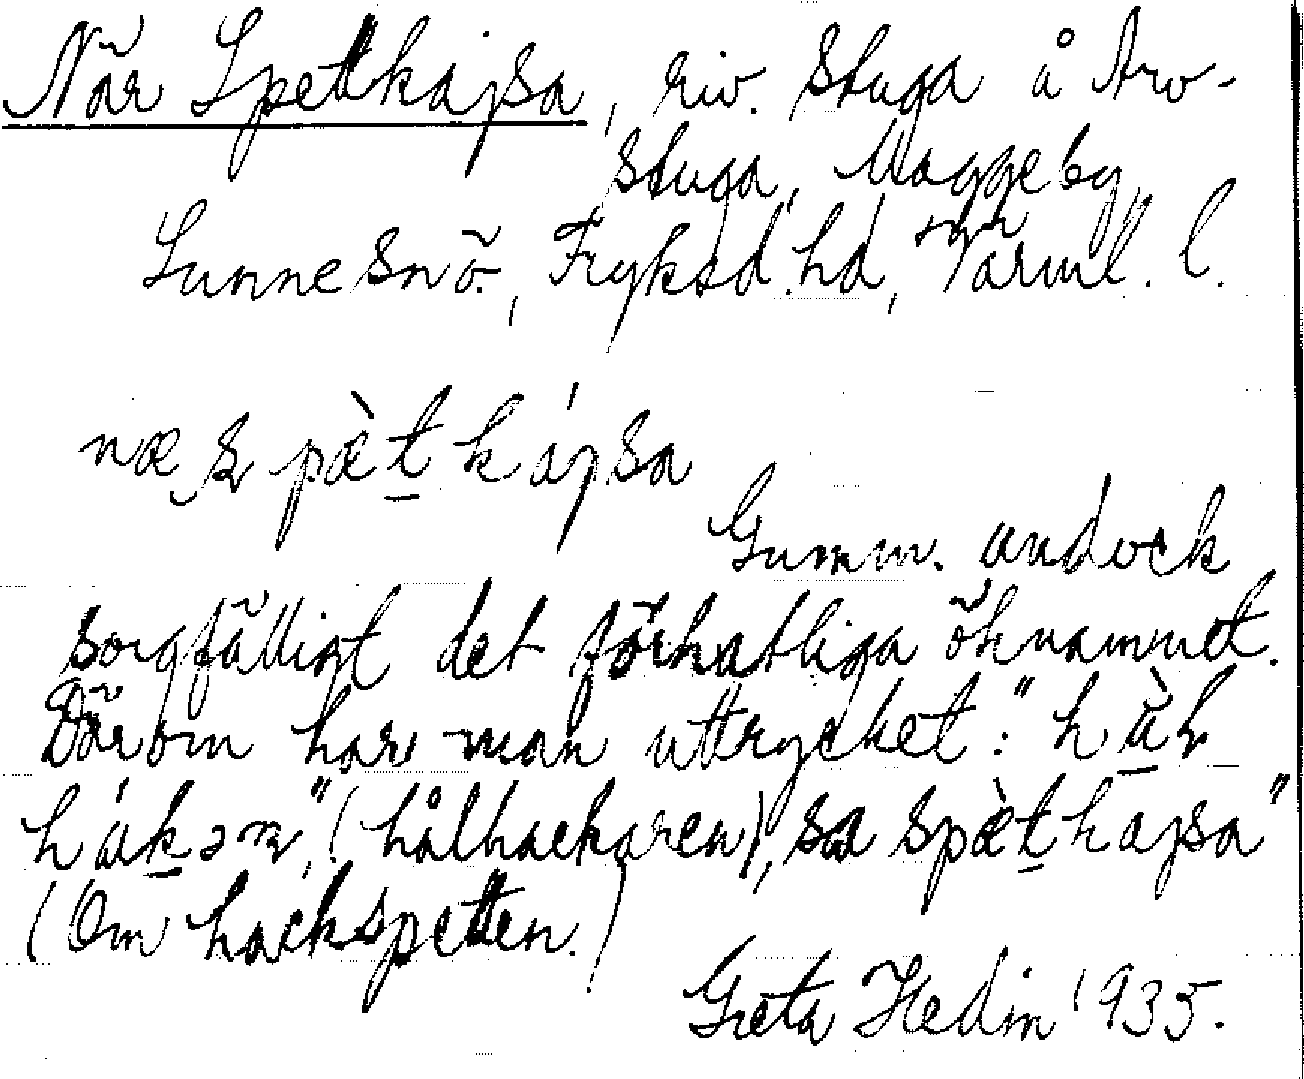 När Spettkajsa, riv. stuga å Arv-
stuga, Uggeby,
Sunne sn ö., Fryksd. hd, Värml. l.
næ ʂ pæ̀t kájsa
Gumm. undvek
sorgfälligt det förhatliga öknamnet.
Därom har man uttrycket: "
(hålhackaren), sa spæ̀t kajsa"
(Om hackspetten.)
Greta Hedin 1935.